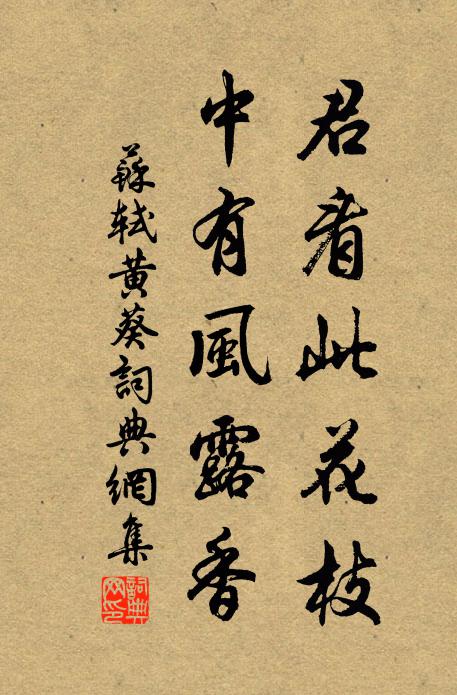 君看此花枝
中有風露香
蘇軾黃葵詞典網集
詞典網印